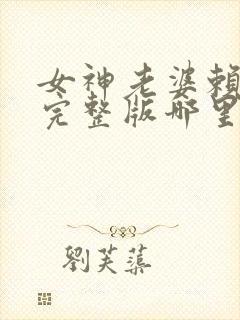 女神老婆賴
完整版哪里
劉芙蕖